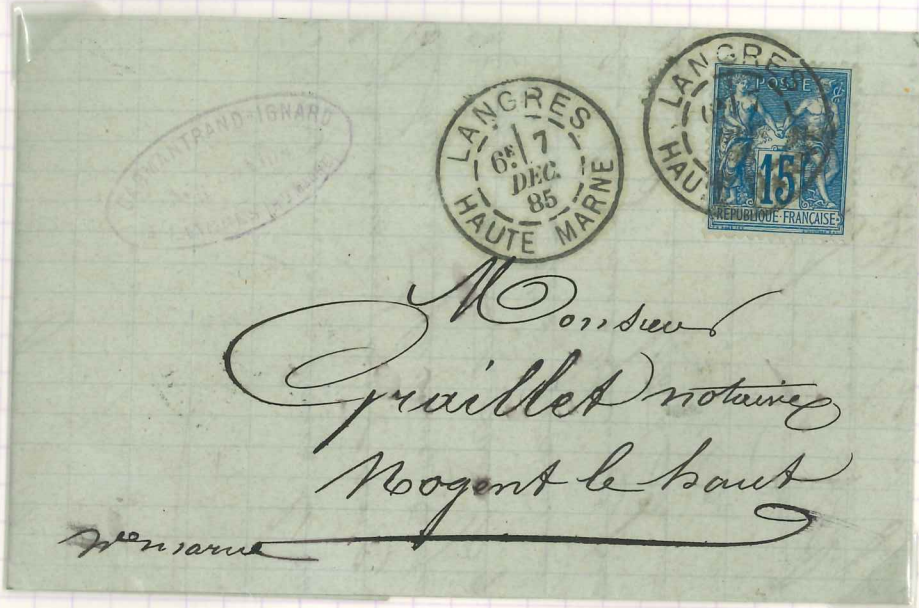 LANGRES
6E 7
DEC.
85
HAUTE MARNE
LANGRES
HAUTE
POSTE
15
REPUBLIQUE FRANCAISE
IGNARD
Monsieur
Graillet notaire
Nogent le haut
hte marne